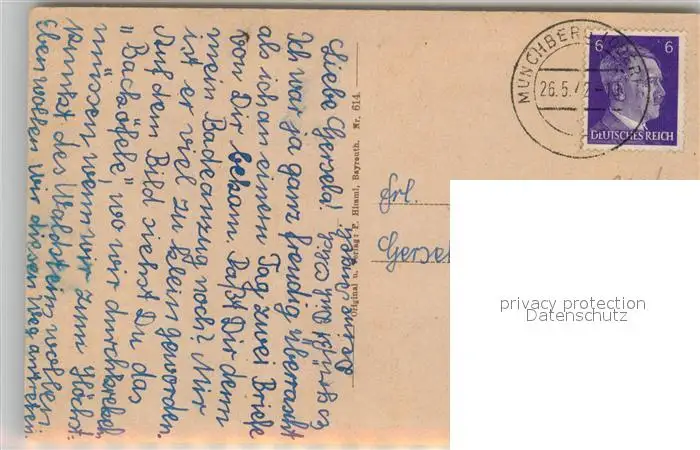 Liebe Gersela!
Ich war ja ganz freudig überrascht
als ich an einem Tag zwei Briefe
von Dir bekam. Paßt Dir denn
mein Badeanzug noch? Mir
ist er viel zu klein geworden.
Auf dem Bild siehst Du das
„Backöfele", wo wir durchkriechen
müssen, wenn wir zum Höchst-
punkt des Waldstein wollen.
Eben wollen wir diesen Weg antreten.
Es grüßt Dich
Deine
Original u. Verlag: F. Hiraml, Bayreuth. Nr. 614.
Frl.
MÜNCHBERG
26.5.42
6 6
DEUTSCHES REICH
privacy protection
Datenschutz